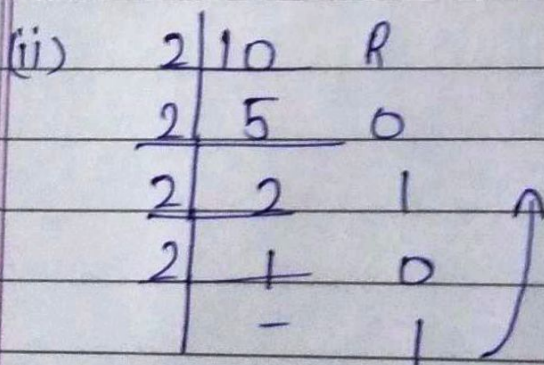 (ii) 2 10 R
2 5 0
2 2 1
2 1 0
- 1